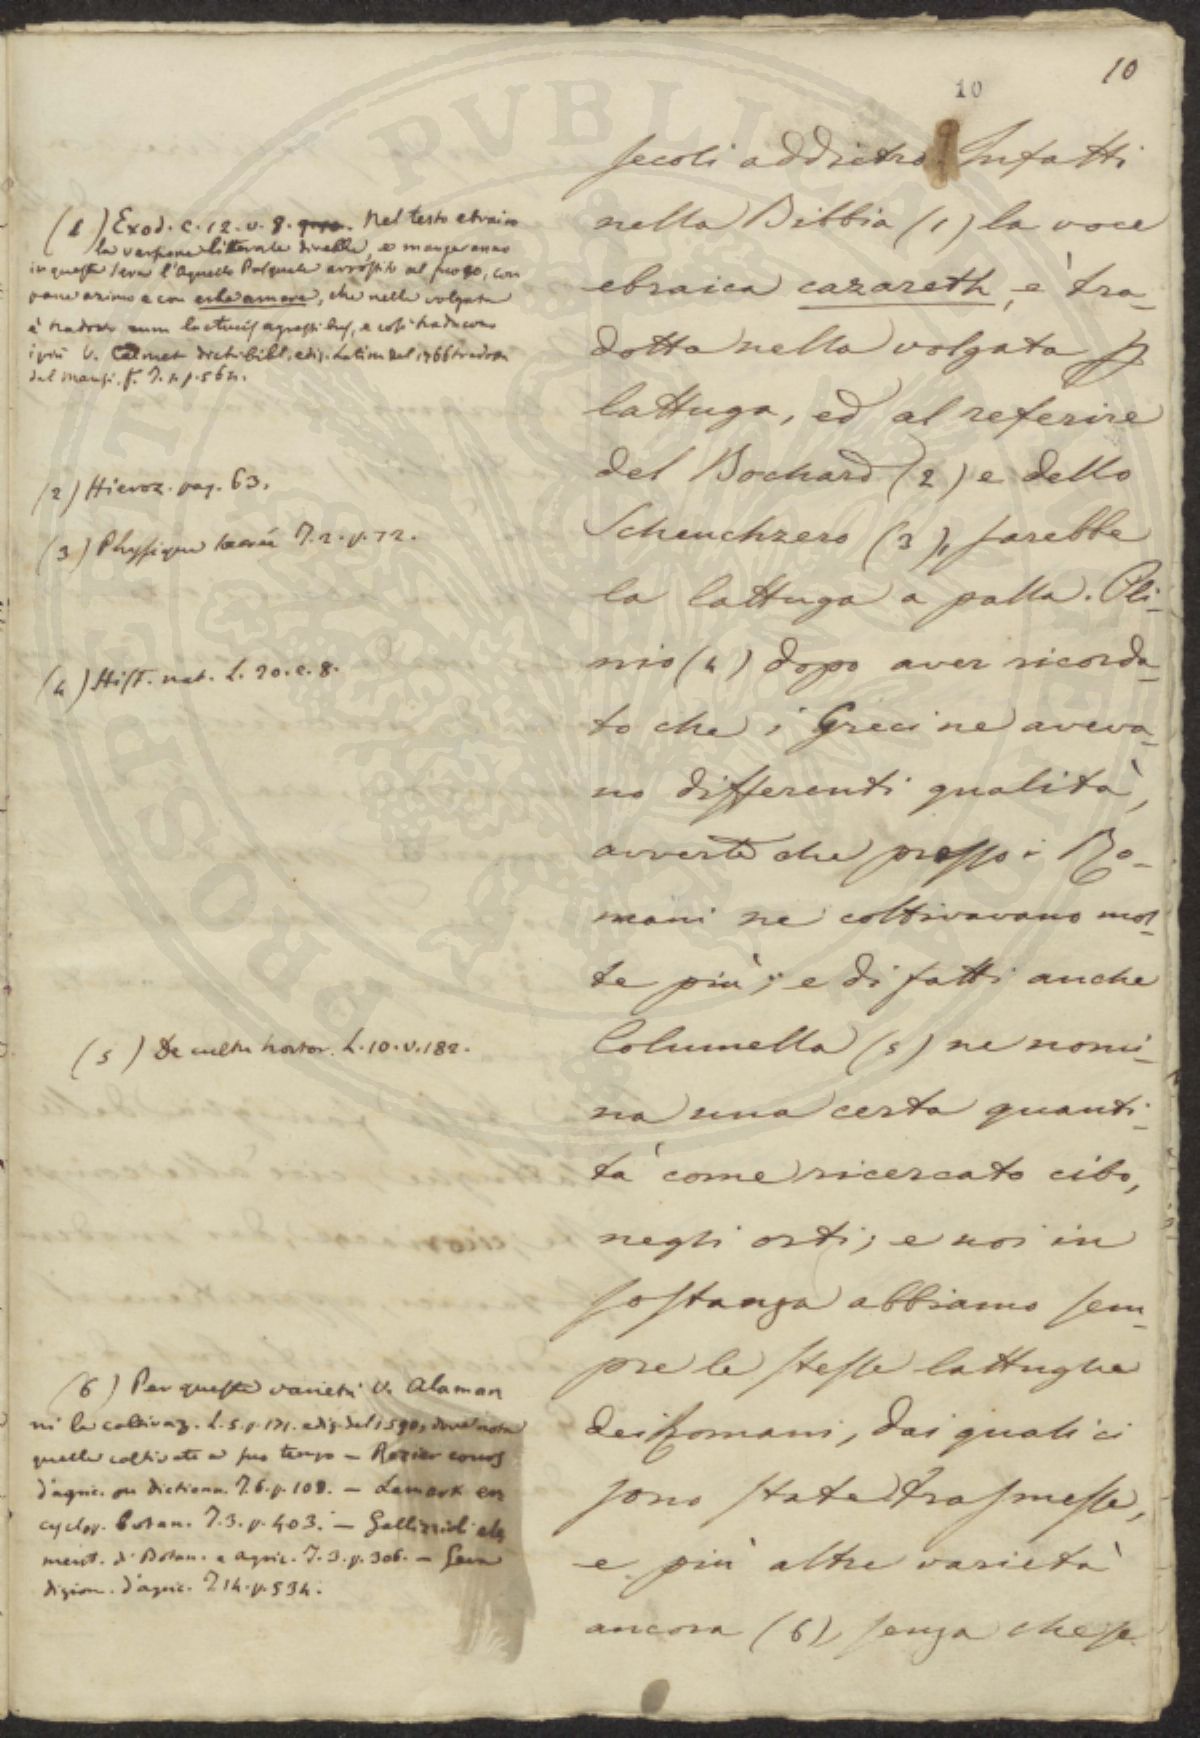 10
10
secoli addietro. Infatti
nella Bibbia (1) la voce
ebraica cazareth, è tra-
dotta nella volgata p
lattuga, ed al referire
del Bochard (2) e dello
Scheuchzero (3), sarebbe
la lattuga a palla. Pli-
nio (4) dopo aver ricorda-
to che i Greci ne aveva-
no differenti qualità,
avverte che presso i Ro-
mani ne coltivavano mol-
te più; e di fatti anche
Columella (5) ne nomi-
na una certa quanti-
tà come ricercato cibo,
negli orti; e noi in
sostanza abbiamo sem-
pre le stesse lattughe
dei Romani, dai quali ci
sono state trasmesse,
e più altre varietà
ancora (6), senza che se
(1) Exod. c. 12. v. 8. Nel testo ebraico
la versione litterale direbbe, e mangeranno
in questa sera l'Agnello Pasquale arrostito al fuoco, con
pane azimo e con erbe amare, che nella volgata
è tradotto cum lactucis agrestibus, e così traducono
i più V. Calmet dict. bibl. ediz. Latina del 1766 tradotta
dal Mansi. T. 1. p. 562.
(2) Hieroz. pag. 63.
(3) Physique sacrée T. 2. p. 72.
(4) Hist. nat. L. 20. c. 8.
(5) De cultu hortor. L. 10. v. 182.
(6) Per queste varietà V. Alaman
ni la coltivaz. L. 5. p. 171. ediz. del 1590, dove nota
quelle coltivate a suo tempo — Rozier cours
d'agric. ou dictionn. T. 6. p. 108. — Lamark en
cyclop. botan. T. 3. p. 403. — Gallizioli ele
ment. di Botan. e agric. T. 3. p. 306. — Gera
dizion. d'agric. T 14. p. 534.